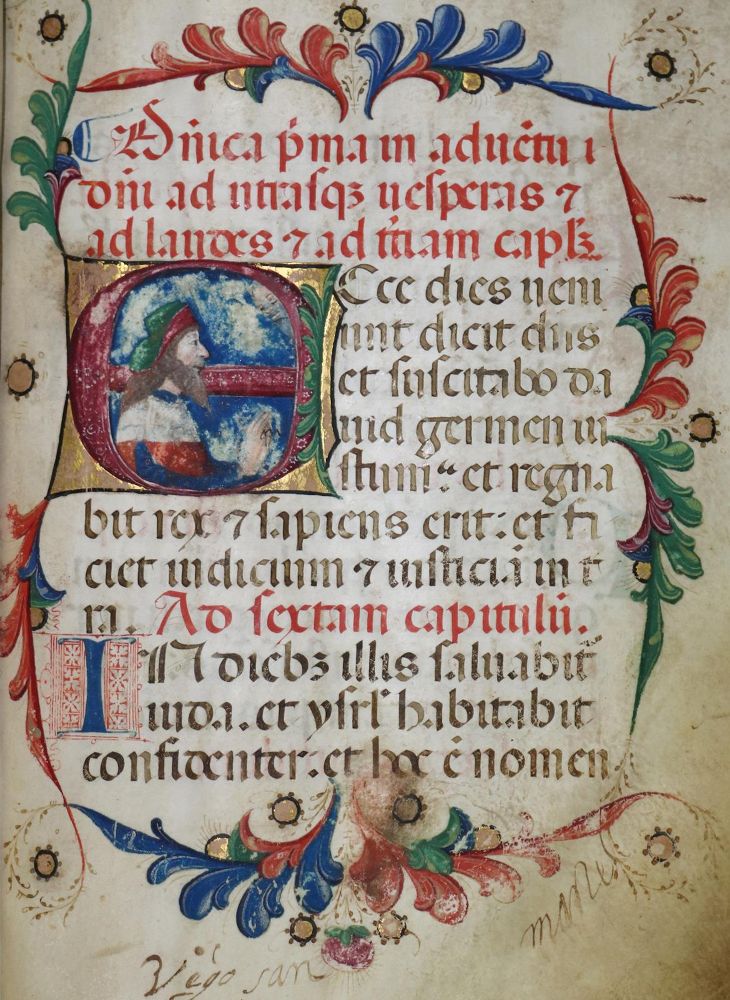 Dn̄ica p̄ma in aduētu i
dn̄i ad utrasqꝫ uesperas ⁊
ad laudes ⁊ ad t̄tiam capłꝫ.
ECce dies ueni
unt dicit dn̄s
et suscitabo da
uid germen iu
stum: et regna
bit rex ⁊ sapiens erit: et fa
ciet iudicium ⁊ iusticiā in t
ra. Ad sextam capitulū.
IN diebꝫ illis saluabit᷑
iuda. et ysrl̄ habitabit
confidenter. et hoc ē nomen
san